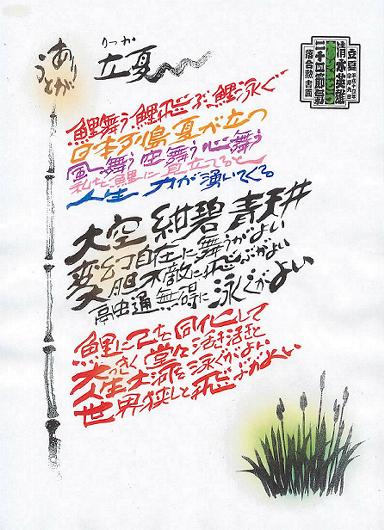 りっか
立夏
ありがとう
鯉舞う鯉飛ぶ鯉泳ぐ
日本列島夏が立つ
風舞う空舞う心舞う
私を鯉に見立てると
人生力が湧いてくる
大空紺碧青天井
変幻自在に舞うがよい
大胆不敵に飛ぶがよい
融通無碍に泳ぐがよい
鯉に己を同化して
大きく堂々活き活きと
人生大河を泳ぐがよい
世界狭しと飛ぶがよい
立夏
清水英雄
二十四節氣
落合勲書画